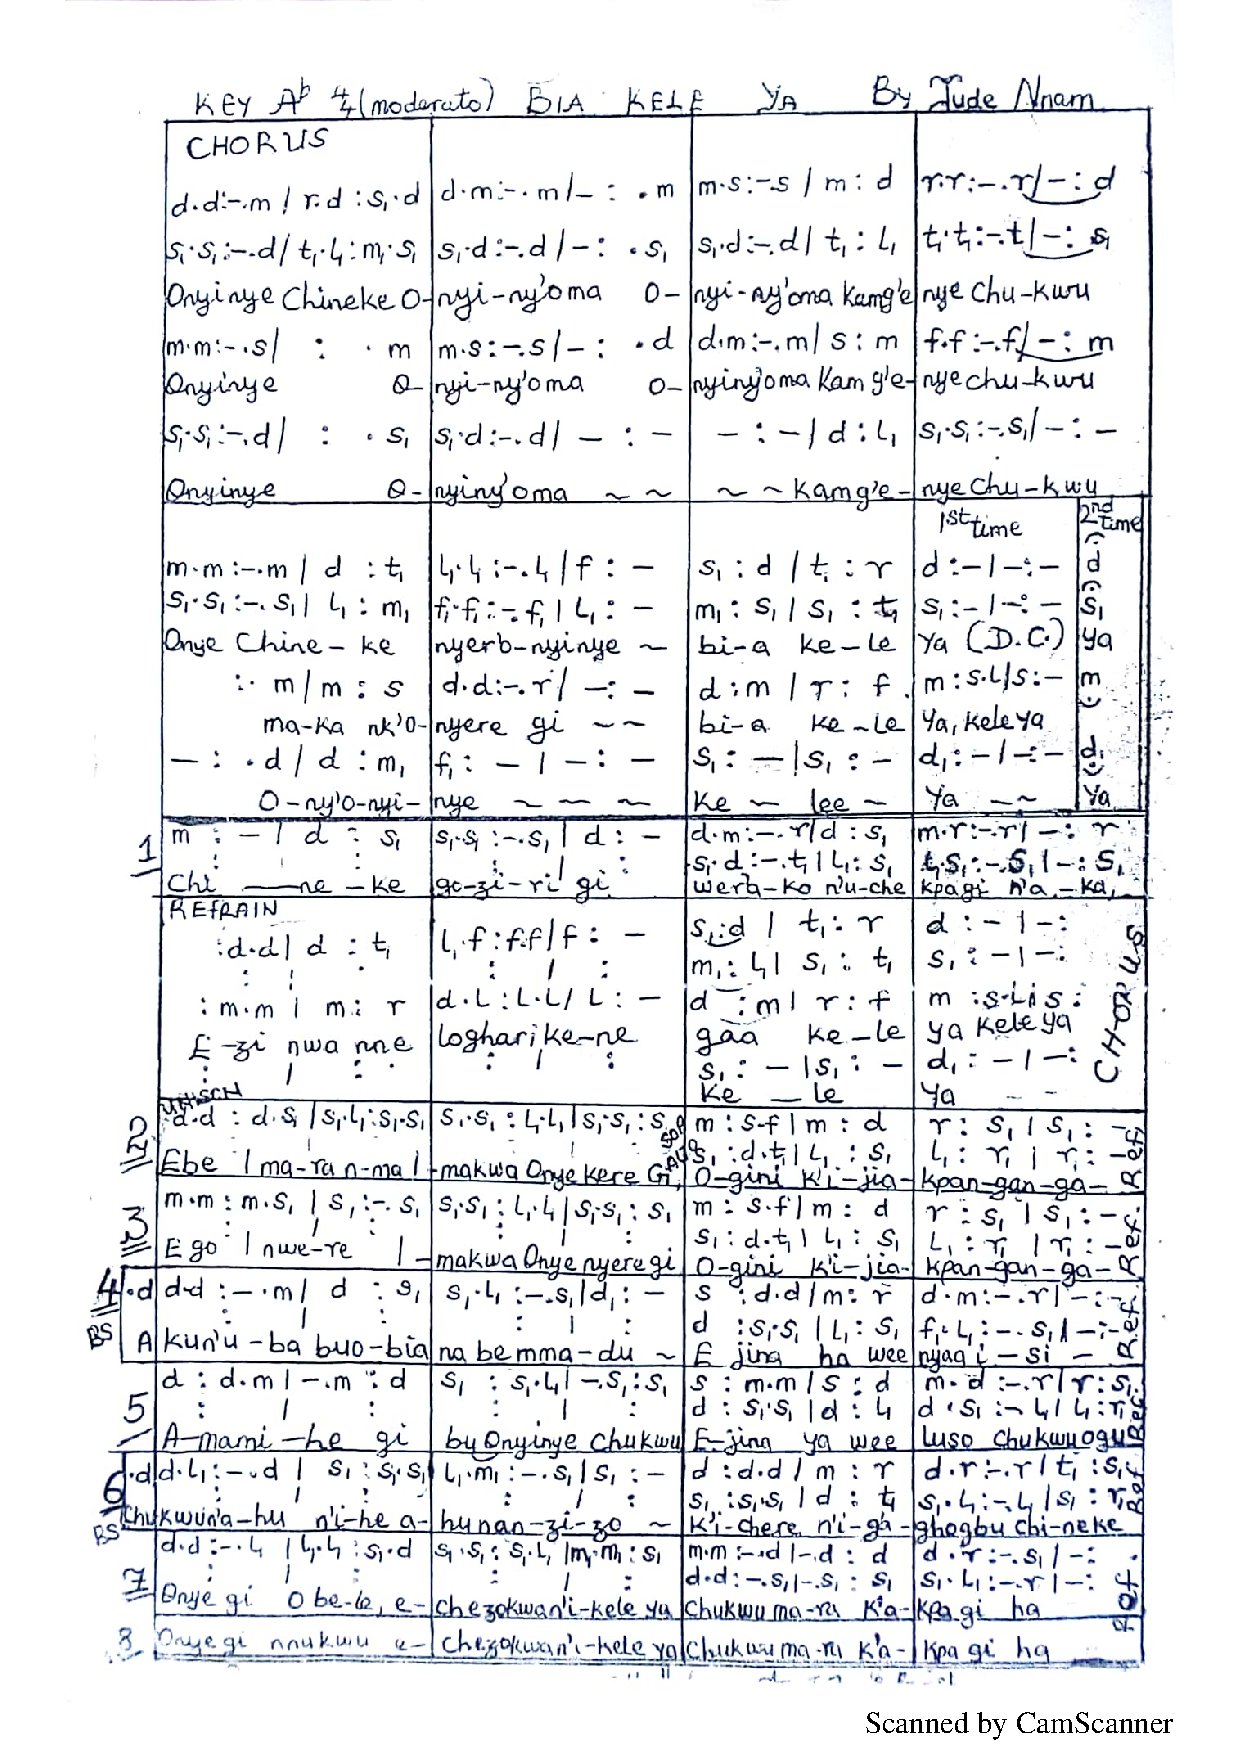 KEY A♭ 4/4 (moderato) BIA KELE YA By Jude Nnam
CHORUS
d.d:-.m / r.d : s₁.d | d.m:-.m/- : .m | m.s:-.s / m : d | r.r:-.r/-: d
s₁.s₁:-.d/ t₁.l₁: m₁.s₁ | s₁.d:-.d/-: .s₁ | s₁.d:-.d/ t₁ : l₁ | t₁.t₁:-.t₁/-: s₁
Onyinye Chineke O- | nyi-ny'oma O- | nyi-ny'oma Kamg'e | nye Chu-kwu
m.m:-.s/ : .m | m.s:-.s/-: .d | d.m:-.m/ s : m | f.f:-.f/-: m
Onyinye O- | nyi-ny'oma O- | nyiny'oma Kam g'e- | nye chu-kwu
s₁.s₁:-.d/ : .s₁ | s₁.d:-.d/ - : - | - : -/ d : l₁ | s₁.s₁:-.s₁/-: -
Onyinye O- | nyiny'oma ~ ~ | ~ ~ Kamg'e- | nye Chu-kwu
1st time | 2nd time
m.m:-.m / d : t₁ | l₁.l₁:-.l₁/ f : - | s₁ : d / t₁ : r | d :-/-:- | d
s₁.s₁:-.s₁/ l₁ : m₁ | f₁.f₁:-.f₁/ l₁ : - | m₁ : s₁ / s₁ : t₁ | s₁:-/-: - | s₁
Onye Chine-ke | nyerb-nyinye ~ | bi-a ke-le | Ya (D.C.) | ya
:. m/ m : s | d.d:-.r/ -: - | d : m / r : f | m : s.l/s:- | m
ma-ka nk'O- | nyere gi ~~ | bi-a ke-le | Ya, kele ya
- : .d / d : m₁ | f₁ : - / - : - | s₁ : - / s₁ : - | d₁ : - / -: - | d₁
O-ny'O-nyi- | nye ~ ~ ~ | Ke ~ lee ~ | Ya ~~ | Ya
1 m : - / d : s₁ | s₁.s₁:-.s₁ / d : - | d.m:-.r/d : s₁ | m.r:-.r/ -: r
: / : | : / : | s₁.d:-.t₁/ l₁: s₁ | t₁.s₁:-.s₁/-: s₁
Chi ——ne -ke | go-zi-ri gi | wera-ko n'u-che | kpagi n'a-ka,
REFRAIN
:d.d/ d : t₁ | l₁.f : f.f/f : - | s₁:d / t₁: r | d : - / -:
: / : | : / : | m₁: l₁/ s₁ : t₁ | s₁ : - / -:
: m.m / m : r | d.l : l.l/ l : - | d : m / r : f | m : s.l/ s :
E-zi nwa nne | loghari ke-ne | gaa ke-le | ya kele ya
: / : | : / : | s₁ : - / s₁ : - | d₁ : - / -:
Ke — le | Ya - -
CHORUS
UNISON
2 d.d : d.s₁ /s₁.l₁:s₁.s₁ | s₁.s₁ : l₁.l₁/s₁.s₁: s₁ | SOP m : s.f / m : d | r : s₁ / s₁ : -
ALTO s₁ : d.t₁/ l₁ : s₁ | l₁ : r₁ / r₁ : -
Ebe / ma-ra n-ma / | -makwa Onye kere Gi, | O-gini k'i-jia- | kpan-gan-ga- Ref.
3 m.m : m.s₁ / s₁:-.s₁ | s₁.s₁ : l₁.l₁/s₁.s₁ : s₁ | m : s.f/ m : d | r : s₁ / s₁ : -
s₁ : d.t₁/ l₁ : s₁ | l₁ : r₁ / r₁ : -
Ego / nwe-re / | -makwa Onye nyere gi | O-gini k'i-jia- | kpan-gan-ga- Ref.
4 .d | d.d :-.m/ d : s₁ | s₁.l₁ :-.s₁/d₁ : - | s : d.d/m : r | d.m:-.r/-:-
BS : / : | : / : | d : s₁.s₁ / l₁ : s₁ | f₁.l₁:-.s₁/-:-
A | kun'u-ba buo-bia | na be mma-du ~ | E jina ha wee | nyagi-si - Ref.
5 d : d.m / -.m : d | s₁ : s₁.l₁/ -.s₁ : s₁ | s : m.m / s : d | m.d:-.r/ r : s₁
: / : | : / : | d : s₁.s₁ / d : l₁ | d.s₁:-.l₁/ l₁ : r₁
A-mami-he gi | by Onyinye Chukwu | E-jina ya wee | luso Chukwu ogu Ref
6 .d | d.l₁:-.d / s₁ : s₁.s₁ | l₁.m₁:-.s₁/ s₁ : - | d : d.d / m : r | d.r:-.r / t₁ : s₁
: / : | : / : | s₁ : s₁.s₁ / d : t₁ | s₁.l₁:-.l₁ / s₁ : r₁
BS Chukwun'a-hu n'i-he a- | hunan-zi-zo ~ | k'i-chere n'i-ga- | ghogbu chi-neke Ref
7 d.d :-.l₁ / l₁.l₁ : s₁.d | s₁.s₁ : s₁.l₁ /m₁.m₁ : s₁ | m.m:-.d/-.d : d | d.r:-.s₁ / -:
: / : | : / : | d.d:-.s₁/-.s₁ : s₁ | s₁.l₁:-.r / -:
Onye gi O be-le, e- | chezokwan'i-kele ya | Chukwu ma-ra k'a- | kpa gi ha Ref.
8. Onye gi nnukwu e- | chezokwan'i-kele ya | Chukwu ma-ra k'a- | kpa gi ha
Scanned by CamScanner